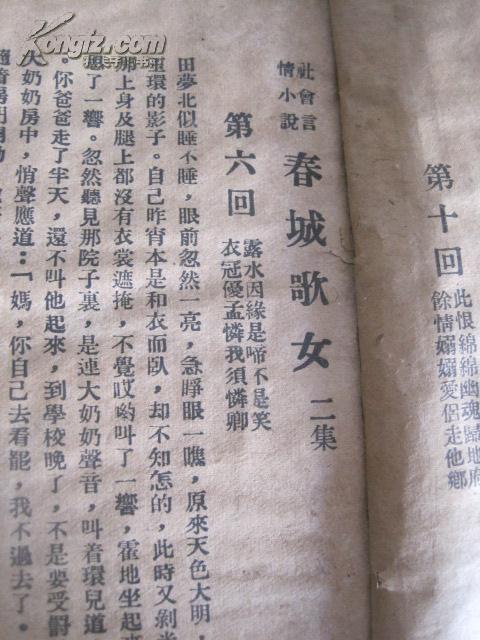 Kongfz.com
第十回
此恨綿綿幽魂歸地府
餘情嫋嫋愛侶走他鄉
社會言
情小說
春城歌女 二集
第六回
露水因緣是啼不是笑
衣冠優孟憐我須憐卿
田夢北似睡不睡,眼前忽然一亮,急睜眼一瞧,原來天色大明,
環的影子。自己昨宵本是和衣而臥,却不知怎的,此時又剝
那上身及腿上都沒有衣裳遮掩,不覺哎喲叫了一響,霍地坐起
了一響。忽然聽見那院子裏,是連大奶奶聲音,叫着環兒道
。你爸爸走了半天,還不叫他起來,到學校晚了,不是要受罰
大奶奶房中,悄聲應道:「媽,你自己去看罷,我不過去了。